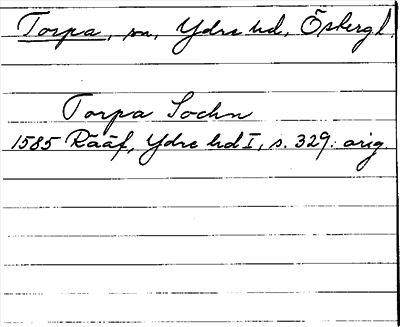 Torpa, sn, Ydre hd, Östergl.
Torpa Sochn
1585 Rääf, Ydre hd I, s. 329: orig.